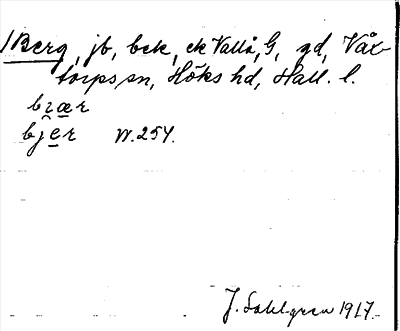 1 Berg, jb, bek, ek Vallå, G, gd, Våx-
torps sn, Höks hd, Hall. l.
bɿær
bjer W. 254.
J. Sahlgren 1917.